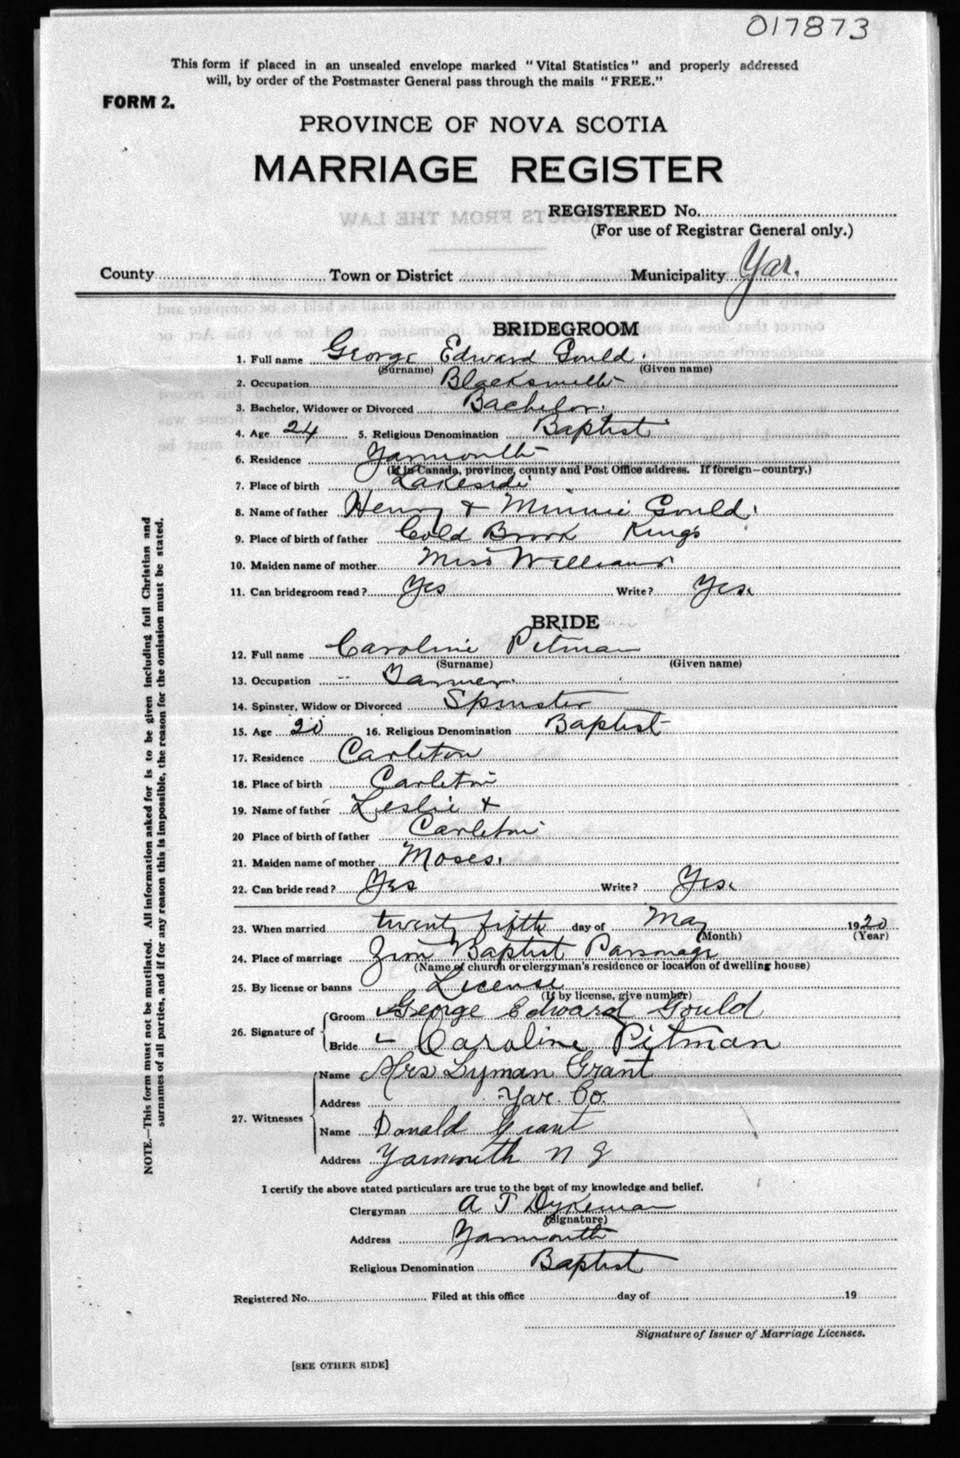 017873
This form if placed in an unsealed envelope marked "Vital Statistics" and properly addressed
will, by order of the Postmaster General pass through the mails "FREE."
FORM 2.
PROVINCE OF NOVA SCOTIA
MARRIAGE REGISTER
REGISTERED No.
(For use of Registrar General only.)
County Town or District Municipality Yar.
BRIDEGROOM
1. Full name George Edward Gould.
(Surname) (Given name)
2. Occupation Blacksmith
3. Bachelor, Widower or Divorced Bachelor.
4. Age 24 5. Religious Denomination Baptist
6. Residence Yarmouth
(If in Canada, province, county and Post Office address. If foreign—country.)
7. Place of birth Lakeside
8. Name of father Henry & Minnie Gould.
9. Place of birth of father Cold Brook Kings
10. Maiden name of mother Miss Williams
11. Can bridegroom read? Yes Write? Yes.
BRIDE
12. Full name Caroline Pitman
(Surname) (Given name)
13. Occupation
14. Spinster, Widow or Divorced Spinster
15. Age 20 16. Religious Denomination Baptist
17. Residence Carleton
18. Place of birth Carleton
19. Name of father Leslie &
20 Place of birth of father Carleton
21. Maiden name of mother Moses.
22. Can bride read? Yes Write? Yes.
23. When married twenty fifth day of May 1920
(Month) (Year)
24. Place of marriage Zion Baptist Parsonage
(Name of church or clergyman's residence or location of dwelling house)
25. By license or banns License
(If by license, give number)
26. Signature of Groom George Edward Gould
Bride Caroline Pitman
27. Witnesses Name Mrs Lyman Grant
Address Yar Co.
Name Donald Grant
Address Yarmouth N S
I certify the above stated particulars are true to the best of my knowledge and belief.
Clergyman A J Dykeman
(Signature)
Address Yarmouth
Religious Denomination Baptist
Registered No. Filed at this office day of 19
Signature of Issuer of Marriage Licenses.
[SEE OTHER SIDE]
NOTE.—This form must not be mutilated. All information asked for is to be given including full Christian and
surnames of all parties, and if for any reason this is impossible, the reason for the omission must be stated.